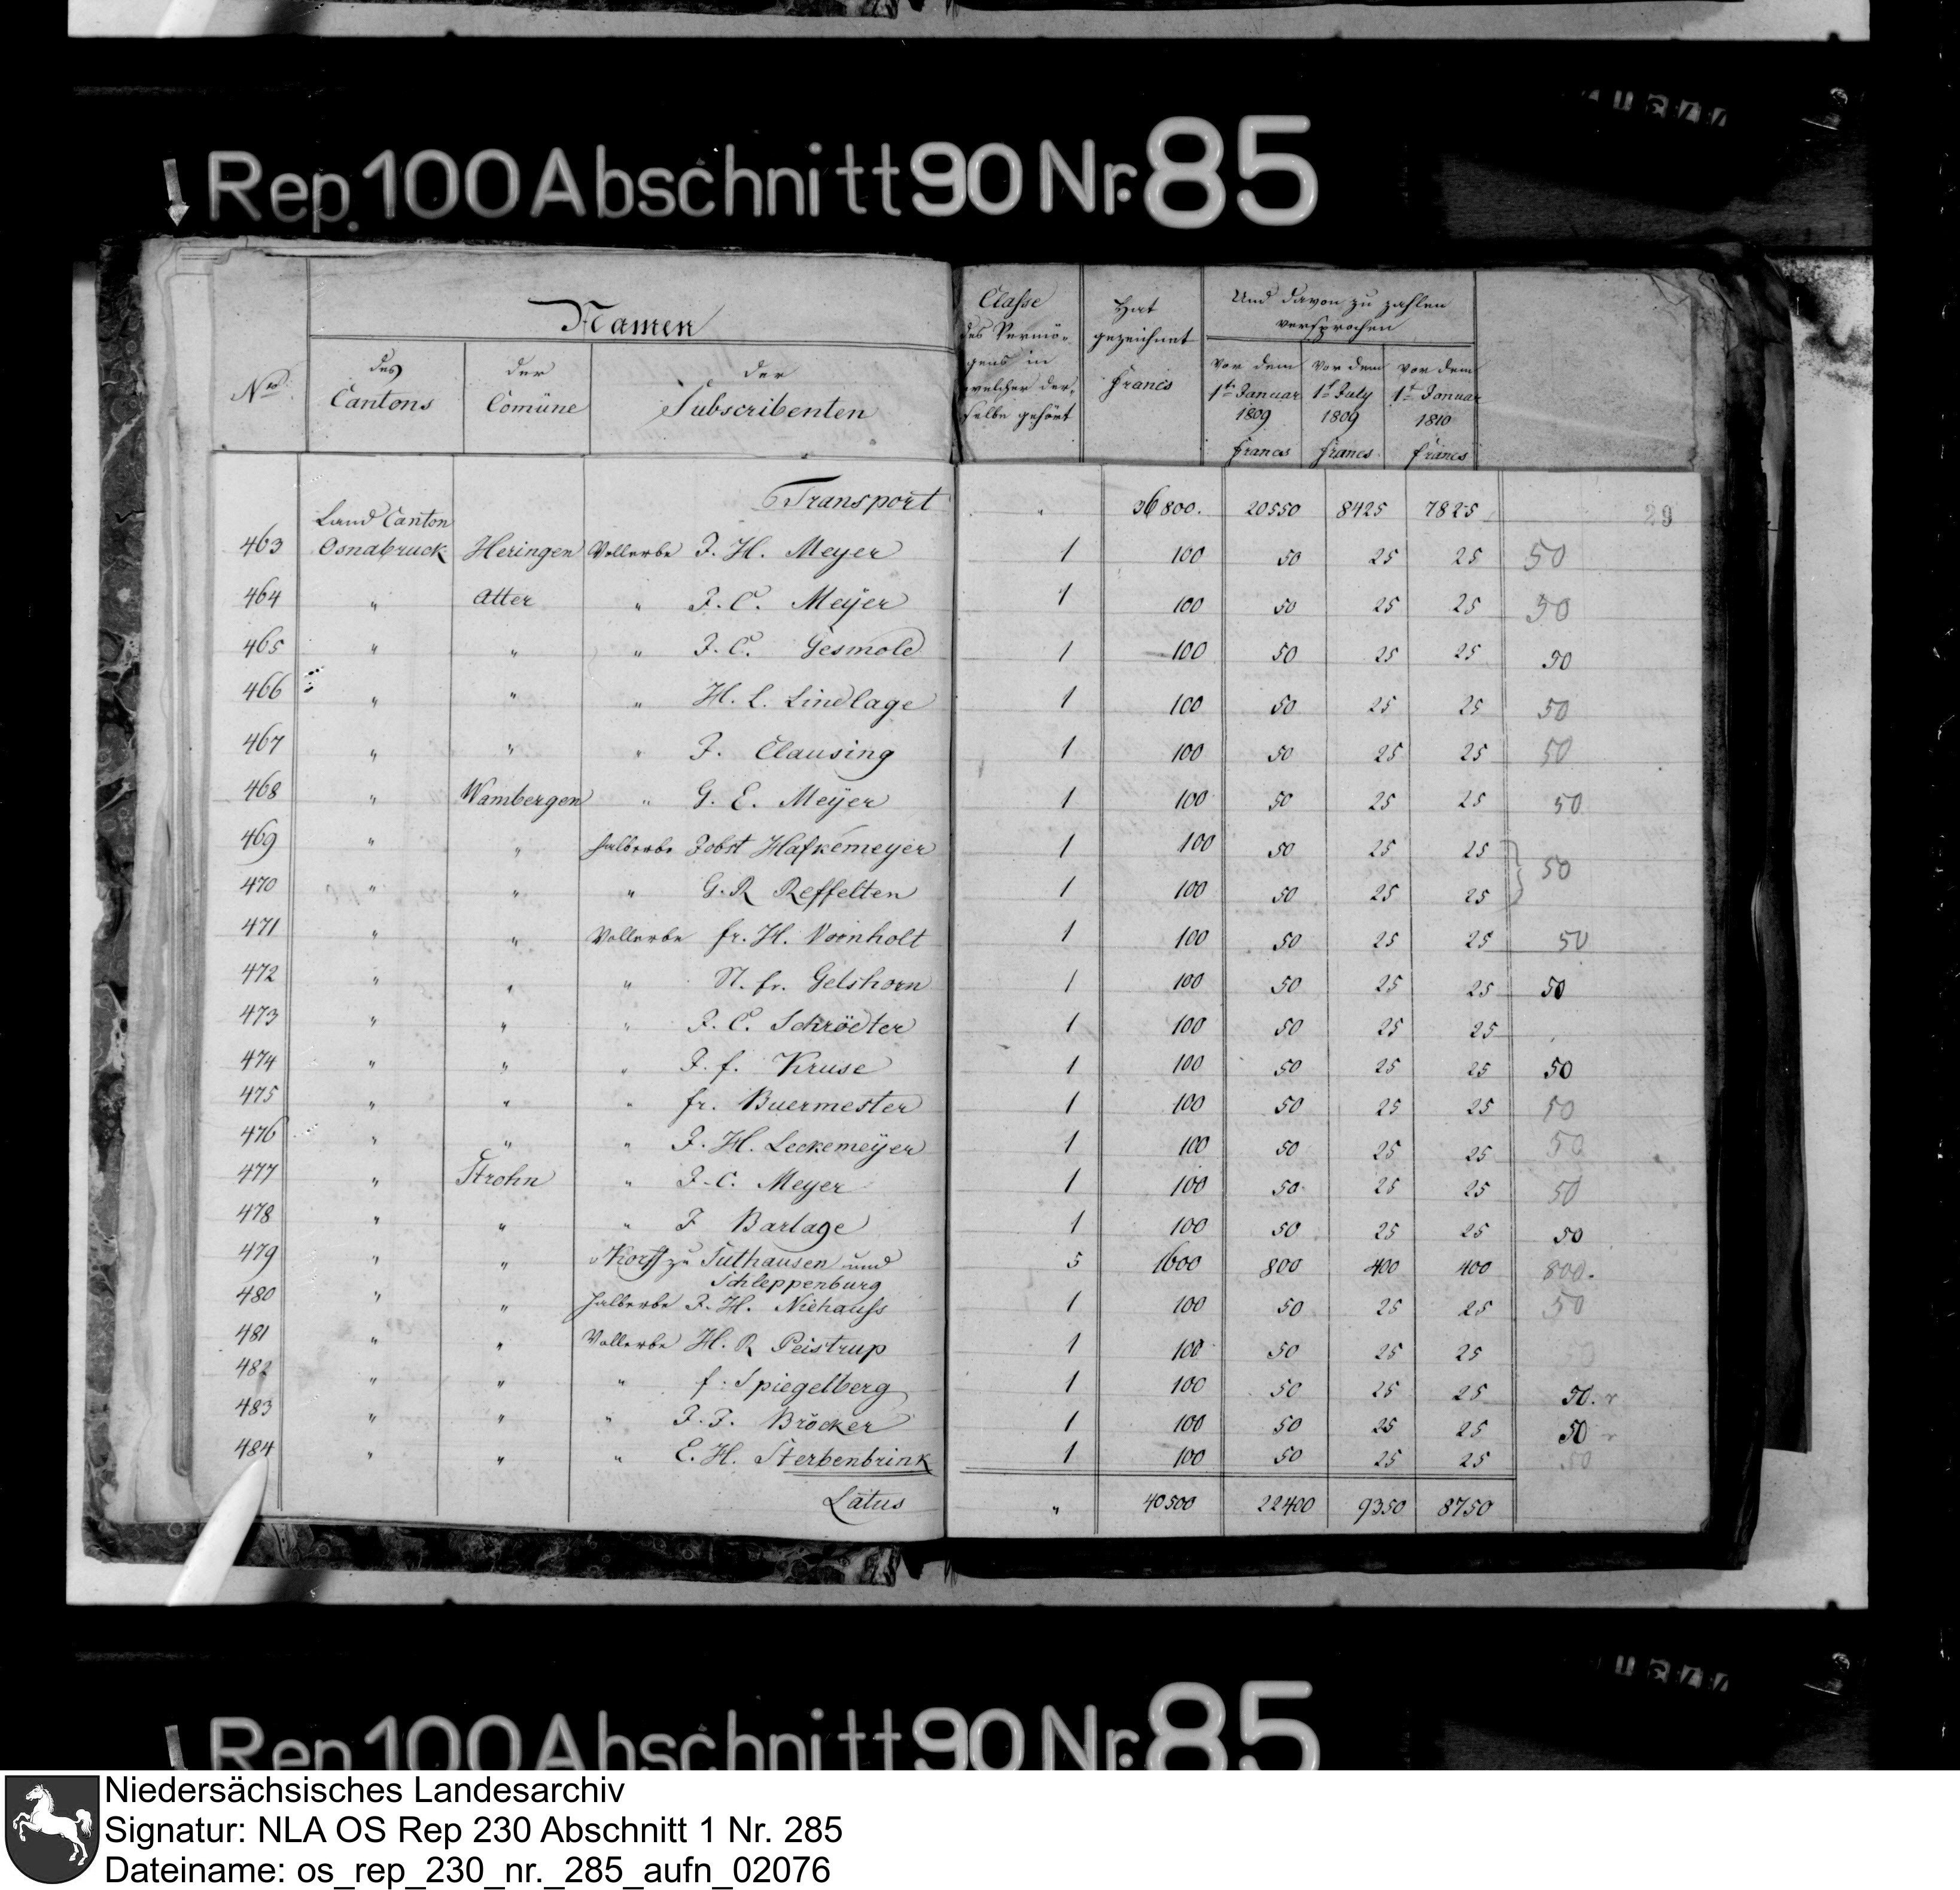 Rep. 100 Abschnitt 90 Nr. 85
Namen
Classe des Vermögens in welcher derselbe gehört
Hat gezeichnet Francs
Und davon zu zahlen versprochen
Nro
des Cantons
der Comüne
der Subscribenten
vor dem 1ten Januar 1809 Francs
vor dem 1t July 1809 Francs
vor dem 1t Januar 1810 Francs
Transport " 36800. 20550 8425 7825 29
Land Canton
463 Osnabruck Heringen Vollerbe J. H. Meyer 1 100 50 25 25 50
464 " Atter " J. C. Meÿer 1 100 50 25 25 50
465 " " " J. C. Gesmold 1 100 50 25 25 50
466 " " " H. L. Lindlage 1 100 50 25 25 50
467 " " " J. Clausing 1 100 50 25 25 50
468 " Wambergen " G. E. Meÿer 1 100 50 25 25 50
469 " " Halberbe Jobst Hafkemeyer 1 100 50 25 25
470 " " " G. R Reffelten 1 100 50 25 25 } 50
471 " " Vollerbe fr. H. Vornholt 1 100 50 25 25 50
472 " " " St. fr. Gelshorn 1 100 50 25 25 50
473 " " " J. C. Schrödter 1 100 50 25 25
474 " " " J. f. Kruse 1 100 50 25 25 50
475 " " " fr. Buermester 1 100 50 25 25 50
476 " " " J. H. Leckemeÿer 1 100 50 25 25 50
477 " Strohn " J. C. Meyer 1 100 50 25 25 50
478 " " " J Barlage 1 100 50 25 25 50
479 " " v Korff zu Suthausen und 5 1600 800 400 400 800.
Schleppenburg
480 " " Halberbe J. H. Niehauss 1 100 50 25 25 50
481 " " Vollerbe H. R Peistrup 1 100 50 25 25 50
482 " " " f. Spiegelberg 1 100 50 25 25 50. r
483 " " " J. J. Bröcker 1 100 50 25 25 50 r
484 " " " E. H. Sterbenbrink 1 100 50 25 25 50
Latus " 40500 22400 9350 8750
Rep. 100 Abschnitt 90 Nr. 85
Niedersächsisches Landesarchiv
Signatur: NLA OS Rep 230 Abschnitt 1 Nr. 285
Dateiname: os_rep_230_nr._285_aufn_02076